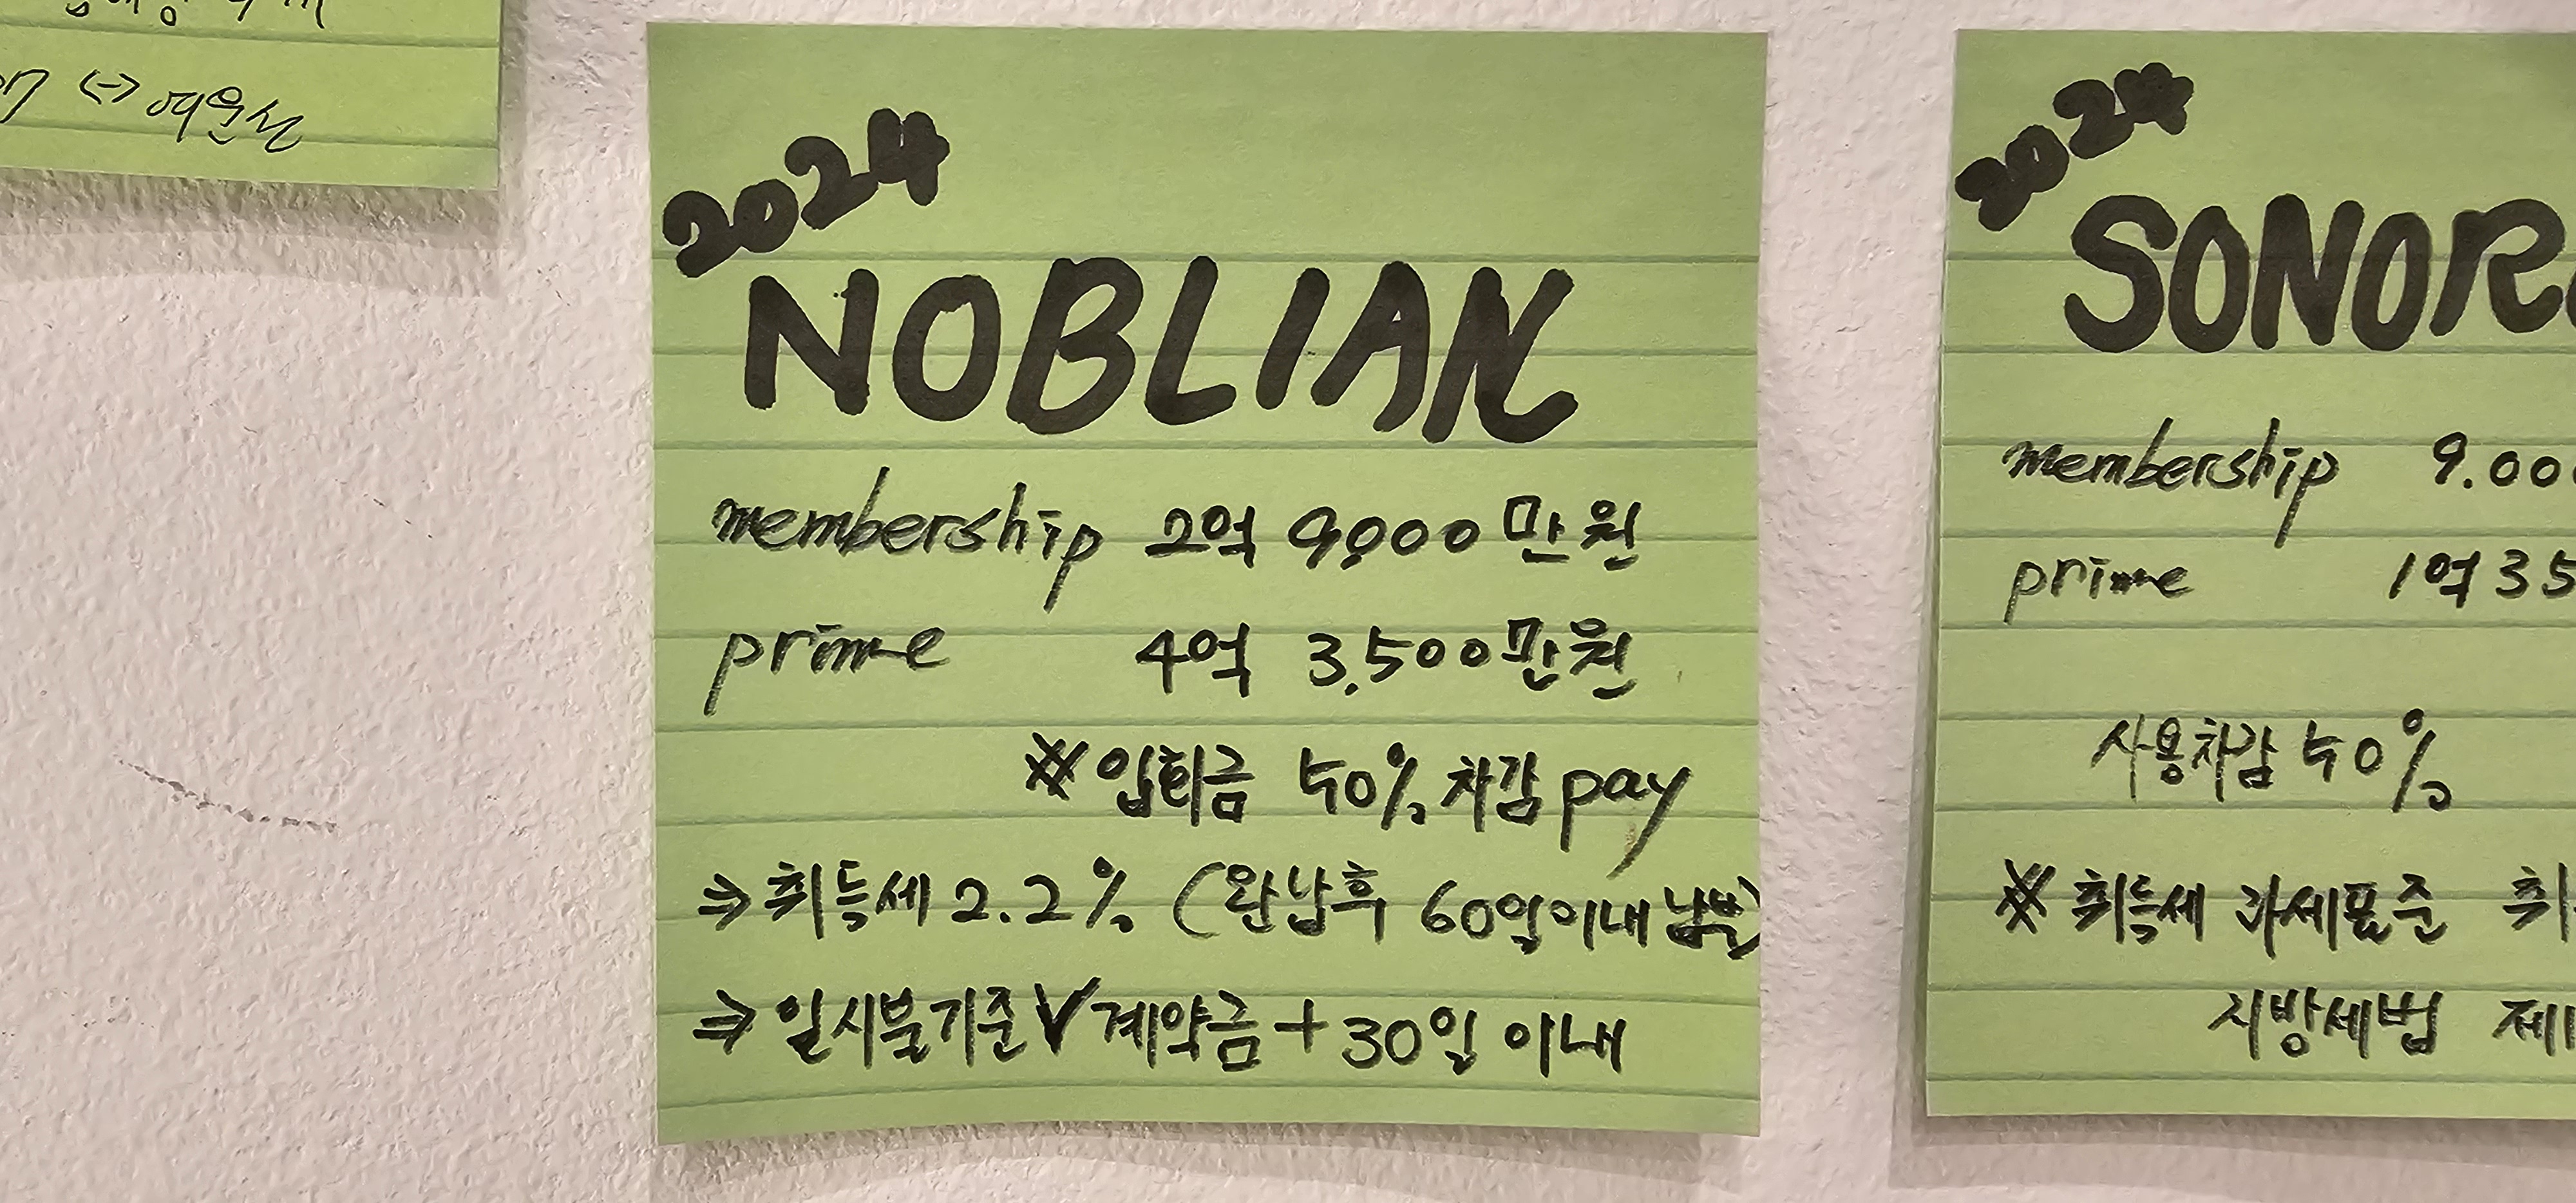 <-> 여운선
2024
NOBLIAN
membership 2억 9,000만원
prime 4억 3,500만원
※입회금 50% 차감 pay
⇒취득세 2.2% (완납후 60일이내 납뿔)
⇒일시불기준V계약금+30일 이내
2024
SONOR
membership 9.00
prime 1억 35
사용차감 50%
※ 취득세 과세표준 취
지방세법 제